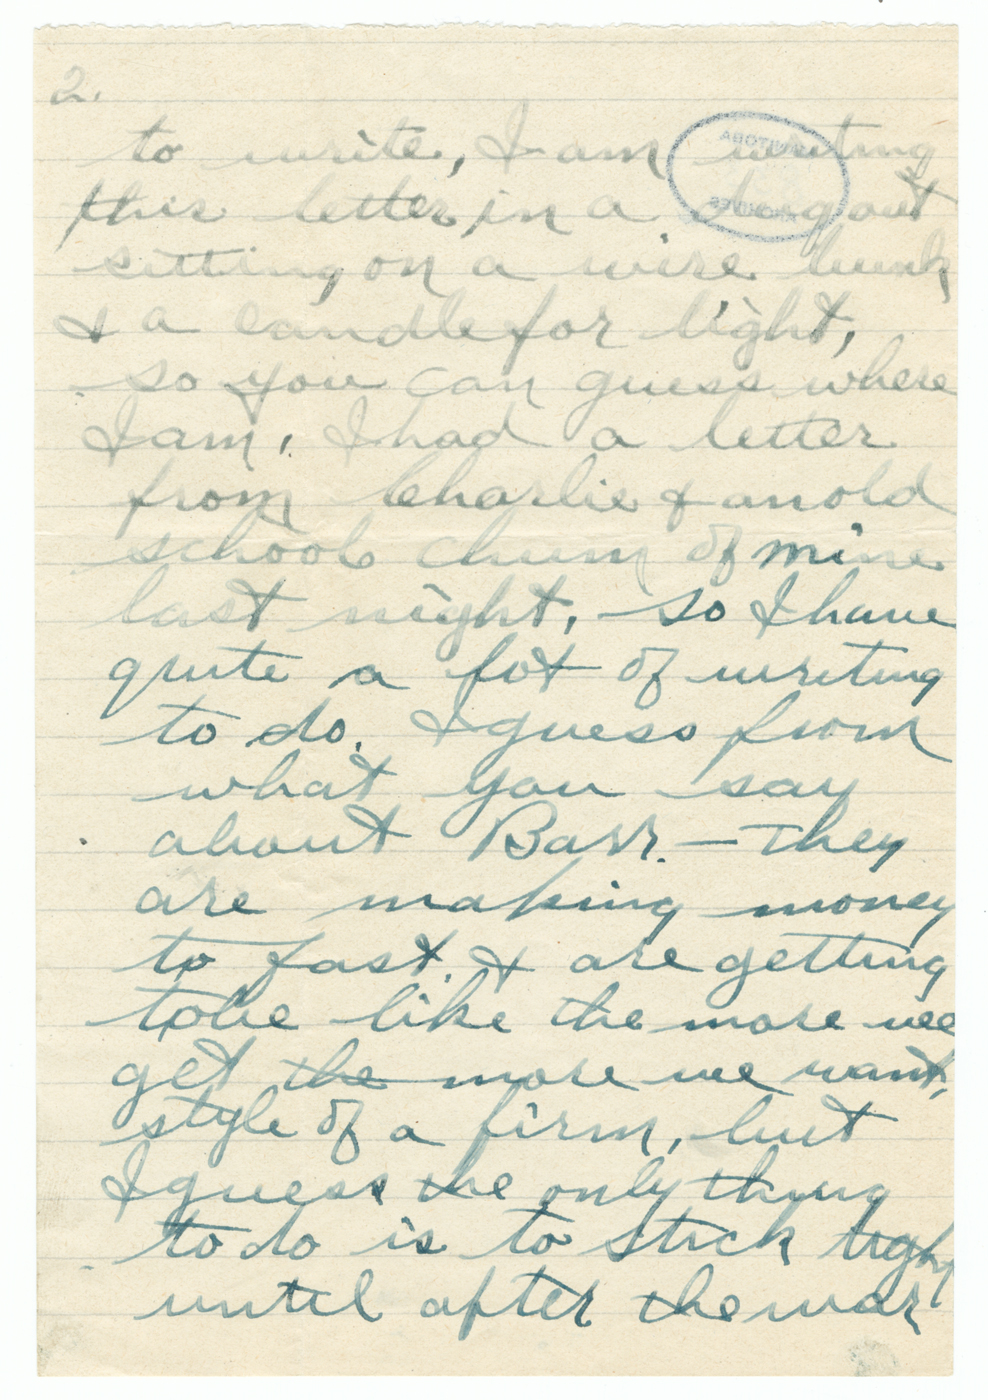 2.
to write, I am writing
this letter, in a dougout
sitting on a wire bunk
& a candle for light,
so you can guess where
I am, I had a letter
from Charlie & an old
school chum of mine
last night, so I have
quite a lot of writing
to do. I guess from
what you say
about Barr. — They
are making money
to fast. & are getting
to be like the more we
get the more we want,
style of a firm, but
I guess the only thing
to do is to stick tight
until after the war